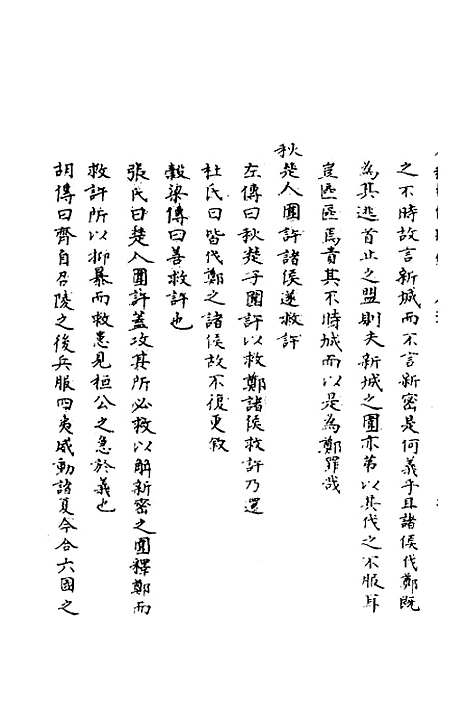 之不時故言新城而不言新密是何義乎且諸侯伐鄭既
為其逃首止之盟則夫新城之圍亦第以其伐之不服耳
豈區區焉責其不時城而以是為鄭罪哉
秋楚人圍許諸侯遂救許
左傳曰秋楚子圍許以救鄭諸侯救許乃還
杜氏曰皆伐鄭之諸侯故不復更敘
穀梁傳曰善救許也
張氏曰楚人圍許蓋攻其所必救以解新密之圍釋鄭而
救許所以抑暴而救患見桓公之急於義也
胡傳曰齊自召陵之後兵服四夷威動諸夏今合六國之